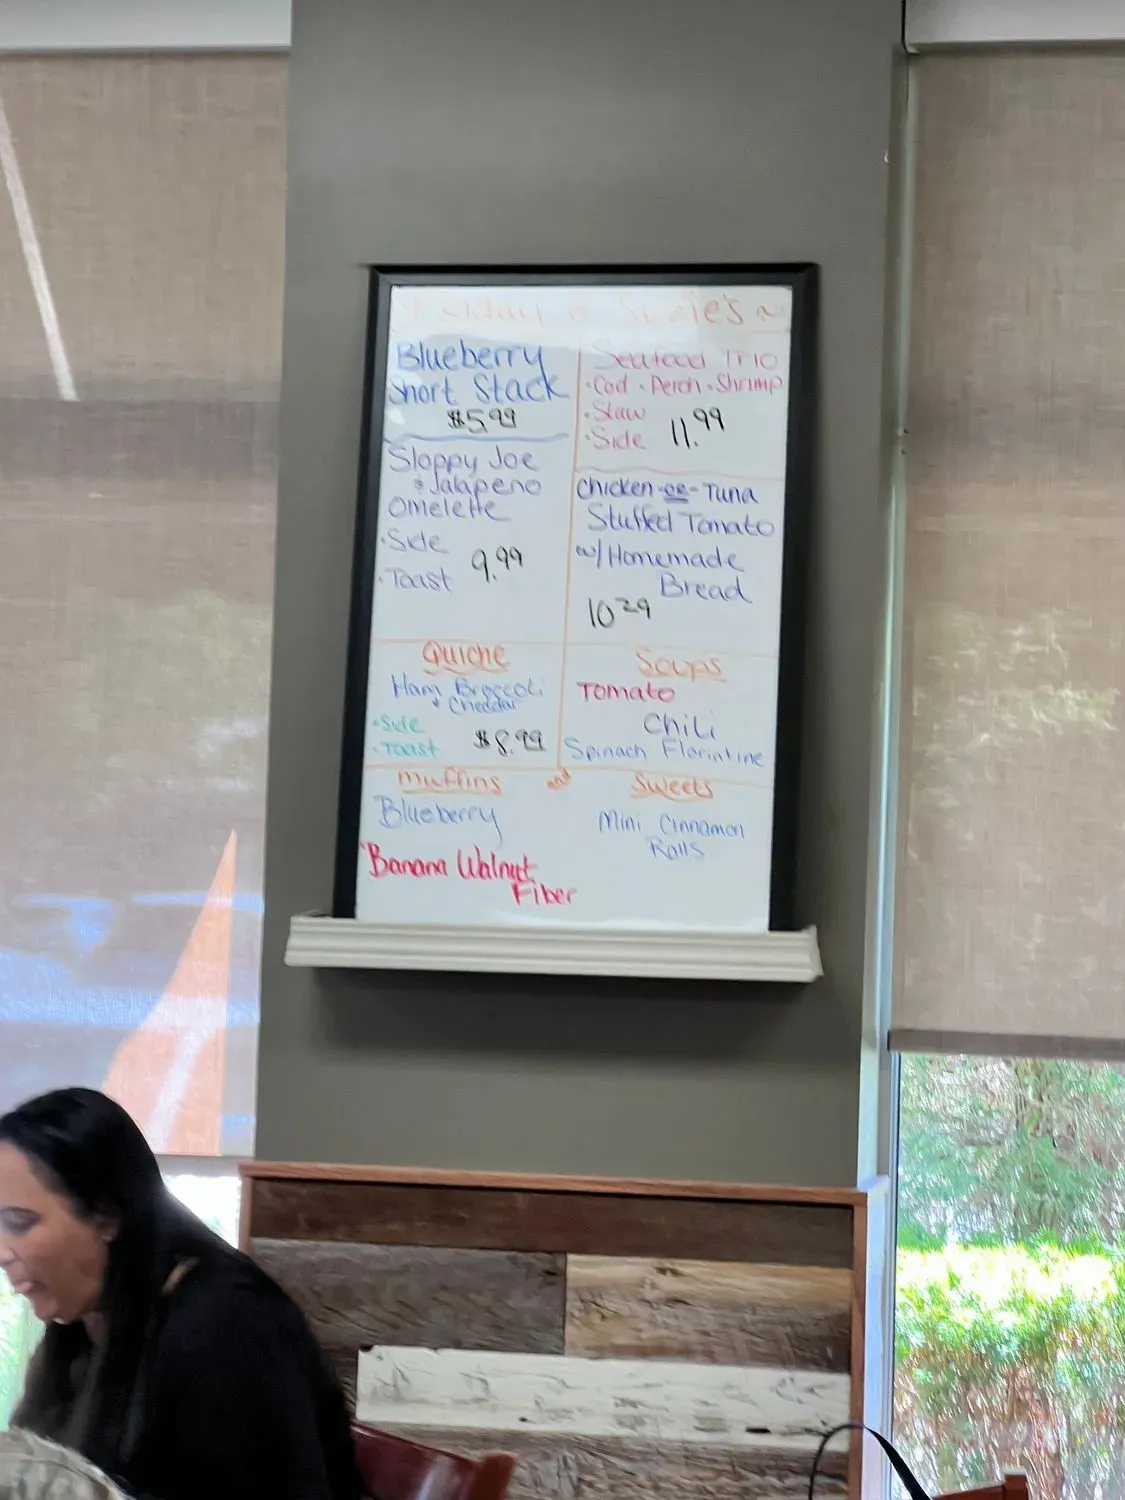 Friday @ Suzie's ~
Blueberry
Short Stack
$5.99
Sloppy Joe
& Jalapeno
Omelette
• Side
• Toast 9.99
Seafood Trio
• Cod • Perch • Shrimp
• Slaw
• Side 11.99
Chicken -or- Tuna
Stuffed Tomato
w/ Homemade
Bread
10 29
Quiche
Ham Broccoli
+ Cheddar
• Side
• Toast $8.99
Soups
Tomato
Chili
Spinach Florintine
Muffins and Sweets
Blueberry
Banana Walnut
Fiber
Mini Cinnamon
Rolls